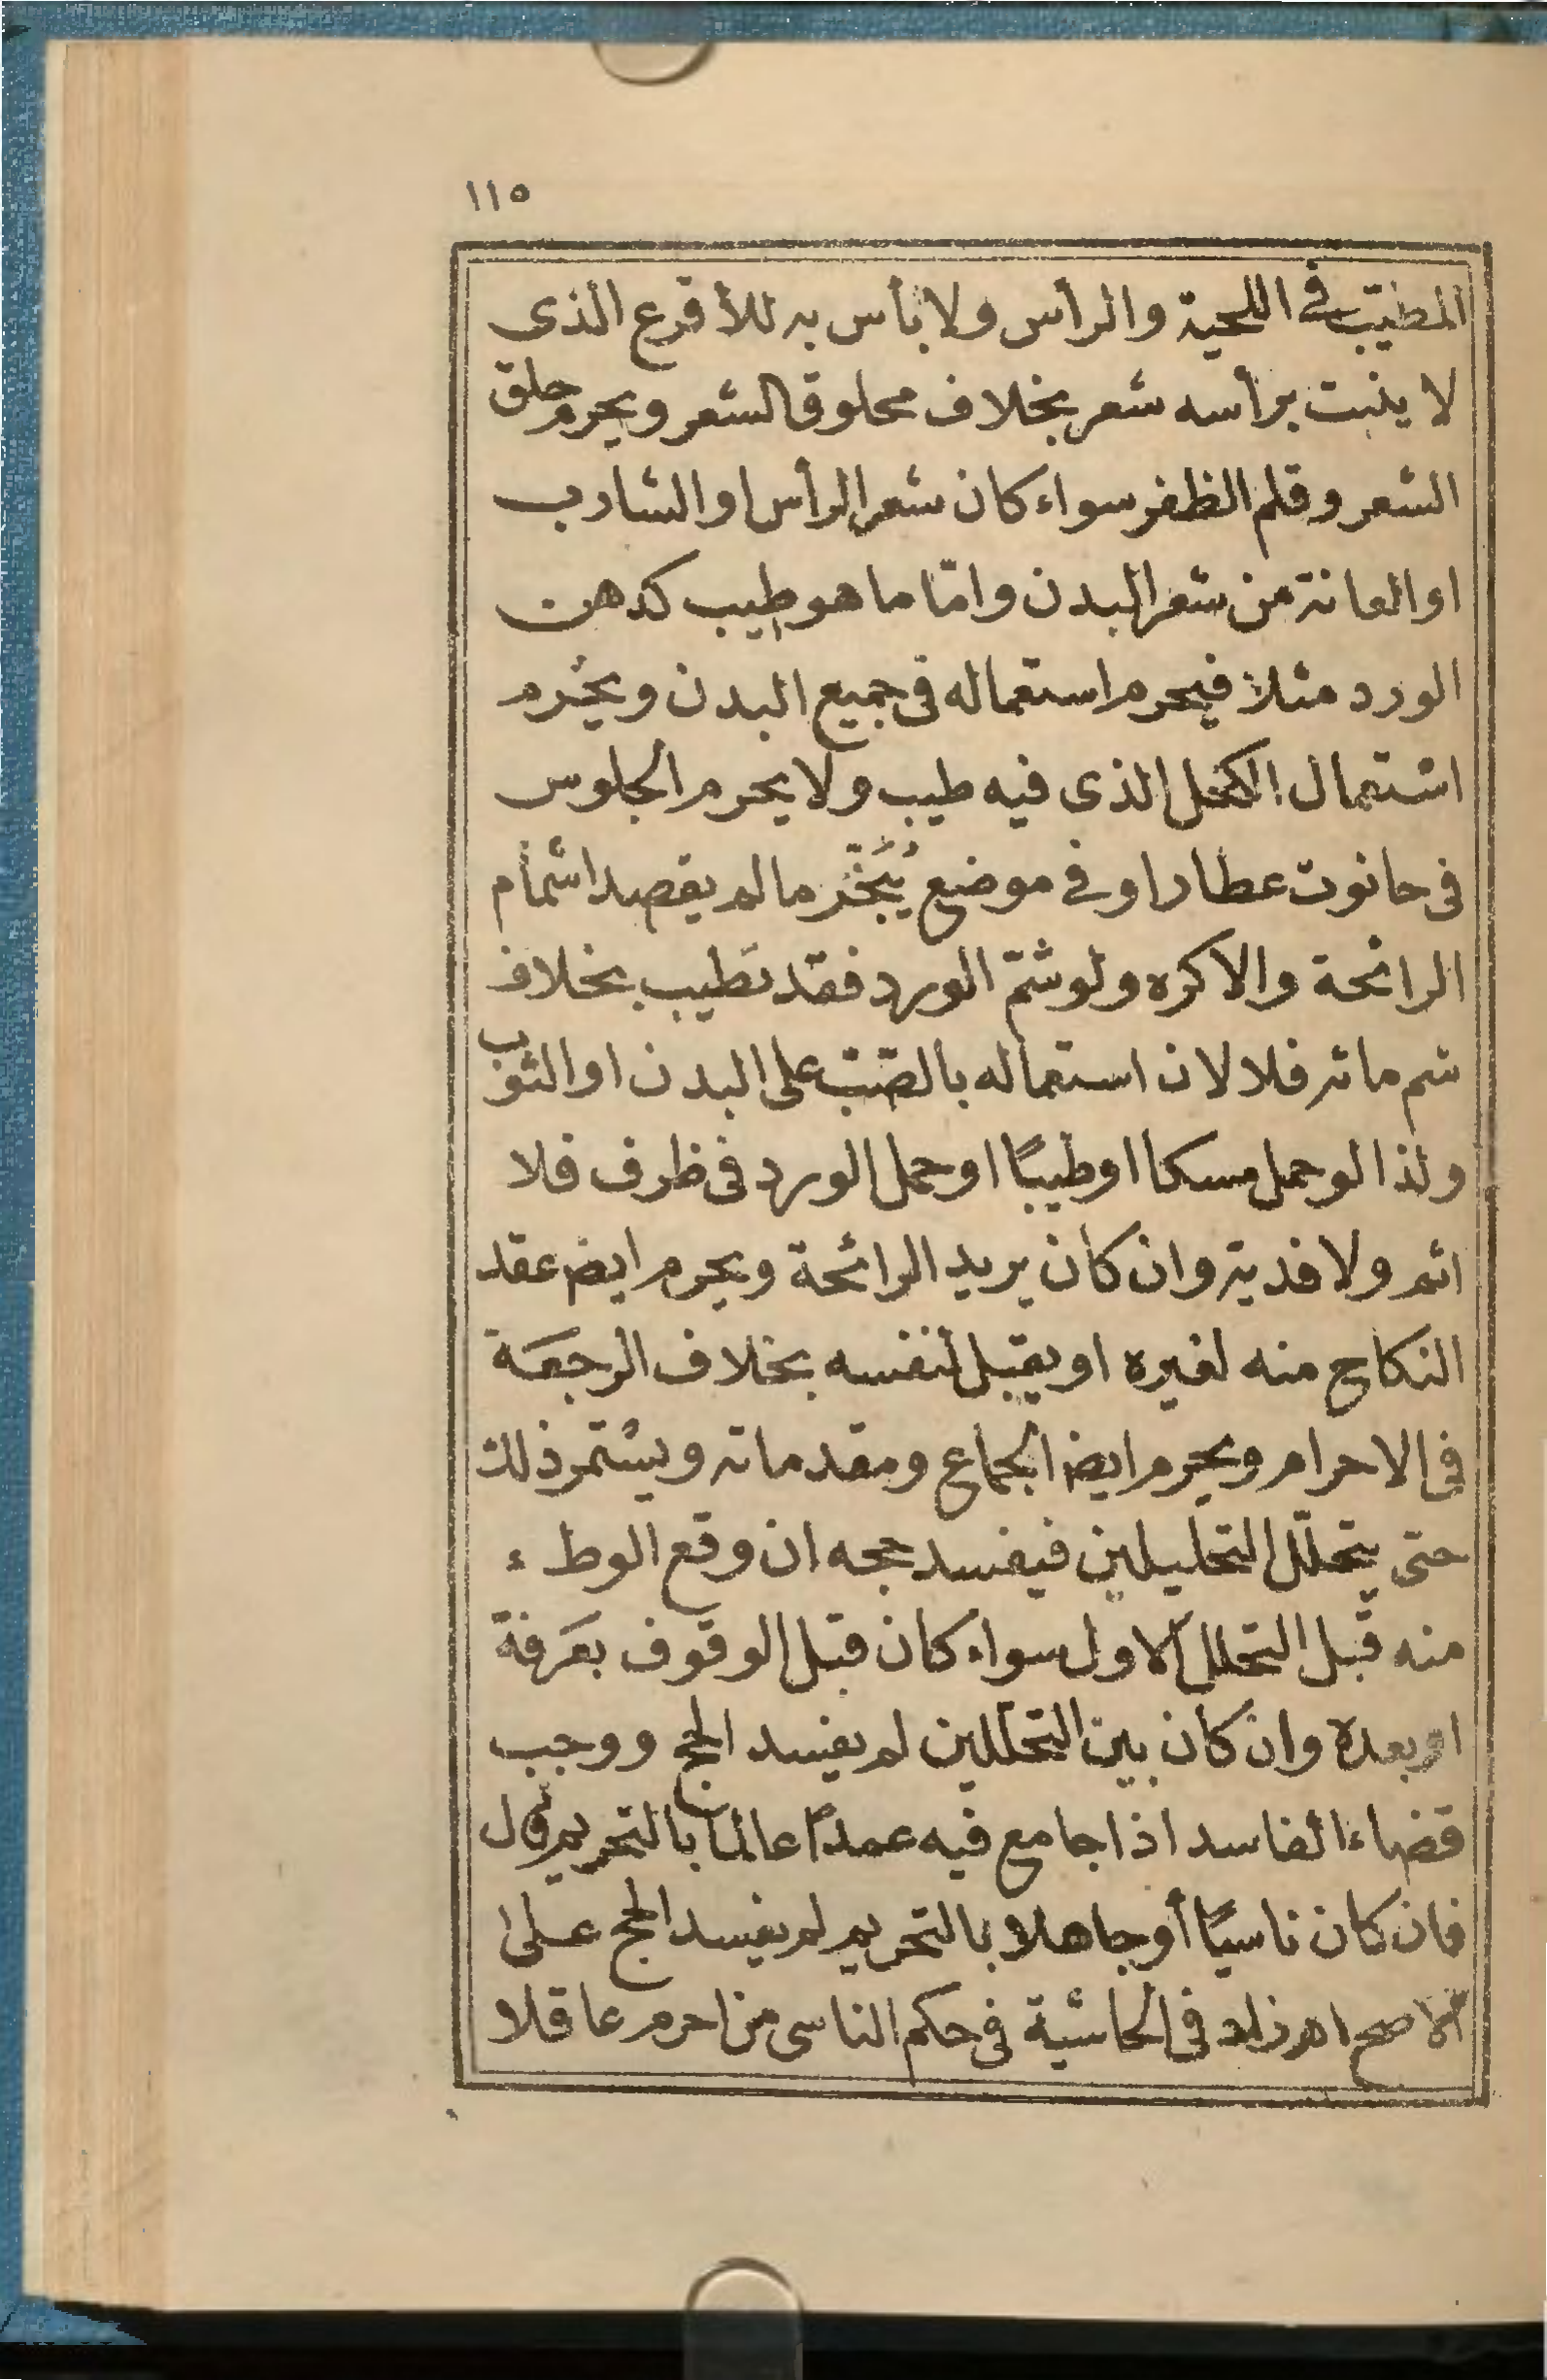 ١١٥
المطيّب في اللحية والرأس ولا بأس به للأقرع الذى
لا ينبت برأسه شعر بخلاف محلوق الشعر ويحرم حلق
الشعر وقلم الظفر سواء كان شعر الرأس او الشارب
او العانة من شعر البدن وامّا ما هو طيب كدهن
الورد مثلا فيحرم استعماله فى جميع البدن ويحرم
استعمال الكحل الذى فيه طيب ولا يحرم الجلوس
فى حانوت عطار او فى موضع يُبَخَّر ما لم يقصد اشمام
الرائحة والا كره ولو شمّ الورد فقد تطيب بخلاف
شم مائه فلا لان استعماله بالصّب على البدن او الثوب
ولذا لو حمل مسكا او طيبًا او حمل الورد فى ظرف فلا
اثم ولا فدية وان كان يريد الرائحة ويحرم ايض عقد
النكاح منه لغيره او يقبل لنفسه بخلاف الرجعة
فى الاحرام ويحرم ايض الجماع ومقدماته ويستمر ذلك
حتى يتحلّل التحليلين فيفسد حجه ان وقع الوطء
منه قبل التحلل الاول سواء كان قبل الوقوف بعَرفة
او بعده وان كان بين التحللين لم يفسد الحج ووجب
قضاء الفاسد اذا جامع فيه عمدًا عالما بالتحريم قال
فان كان ناسيًا أو جاهلا بالتحريم لم يفسد الحج على
الاصح اه زاد فى الحاشية فى حكم الناسى من احرم عاقلا